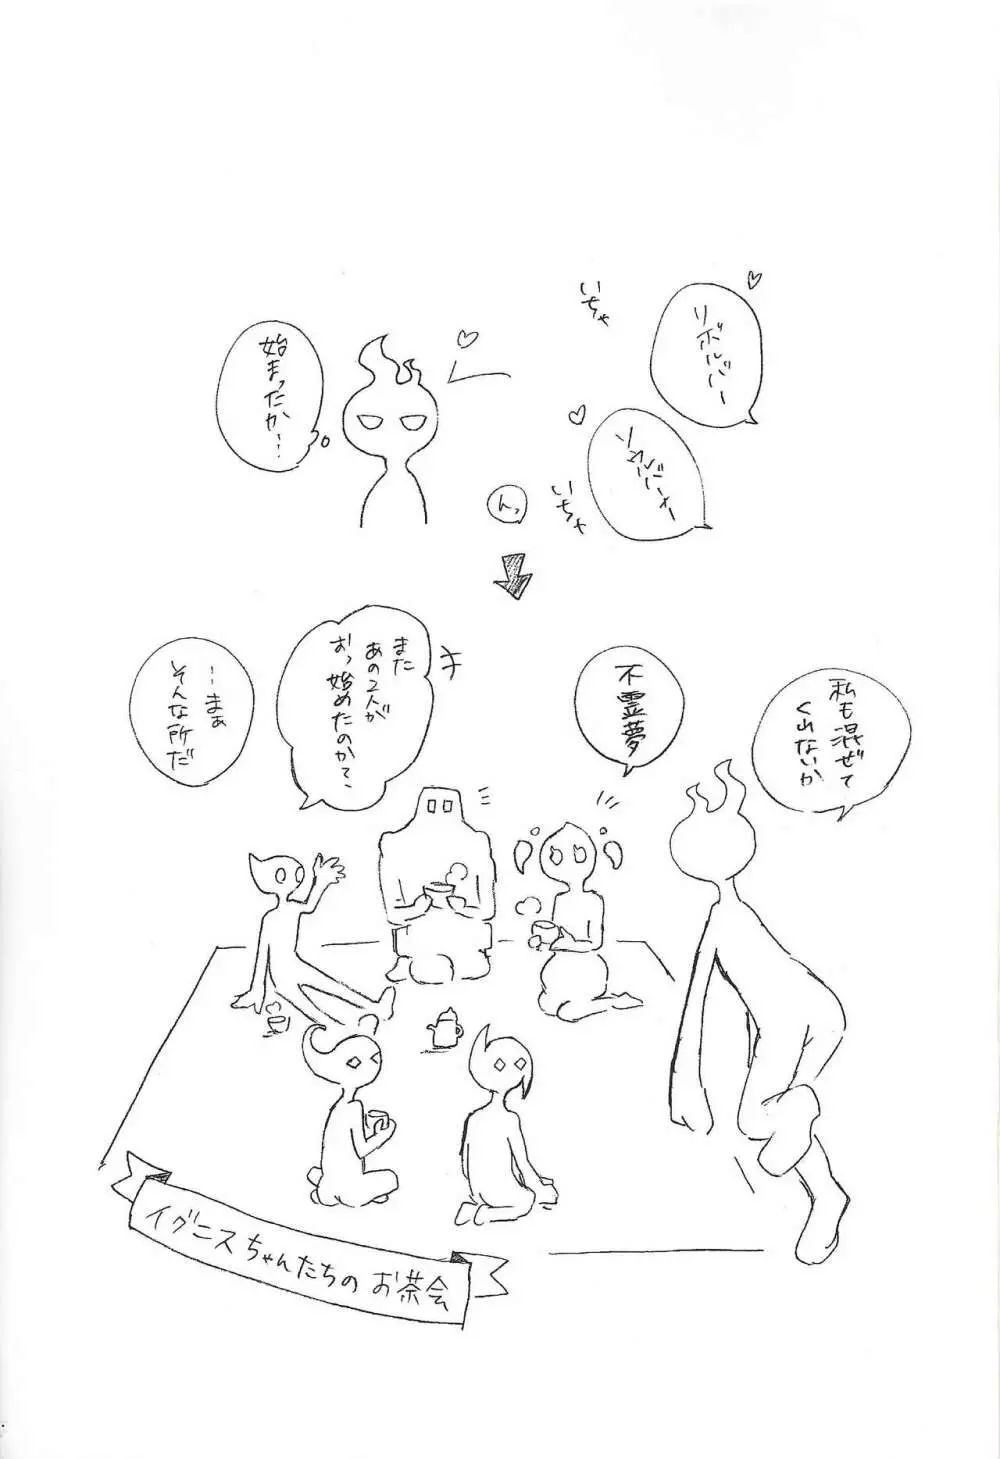 いちゃ
リボルバー
ソウルバーナー
いちゃ
んっ
始まったか…
私も混ぜて
くれないか
不霊夢
また
あの2人が
おっ始めたのかて、
…まぁ
そんな所だ
イグニスちゃんたちのお茶会